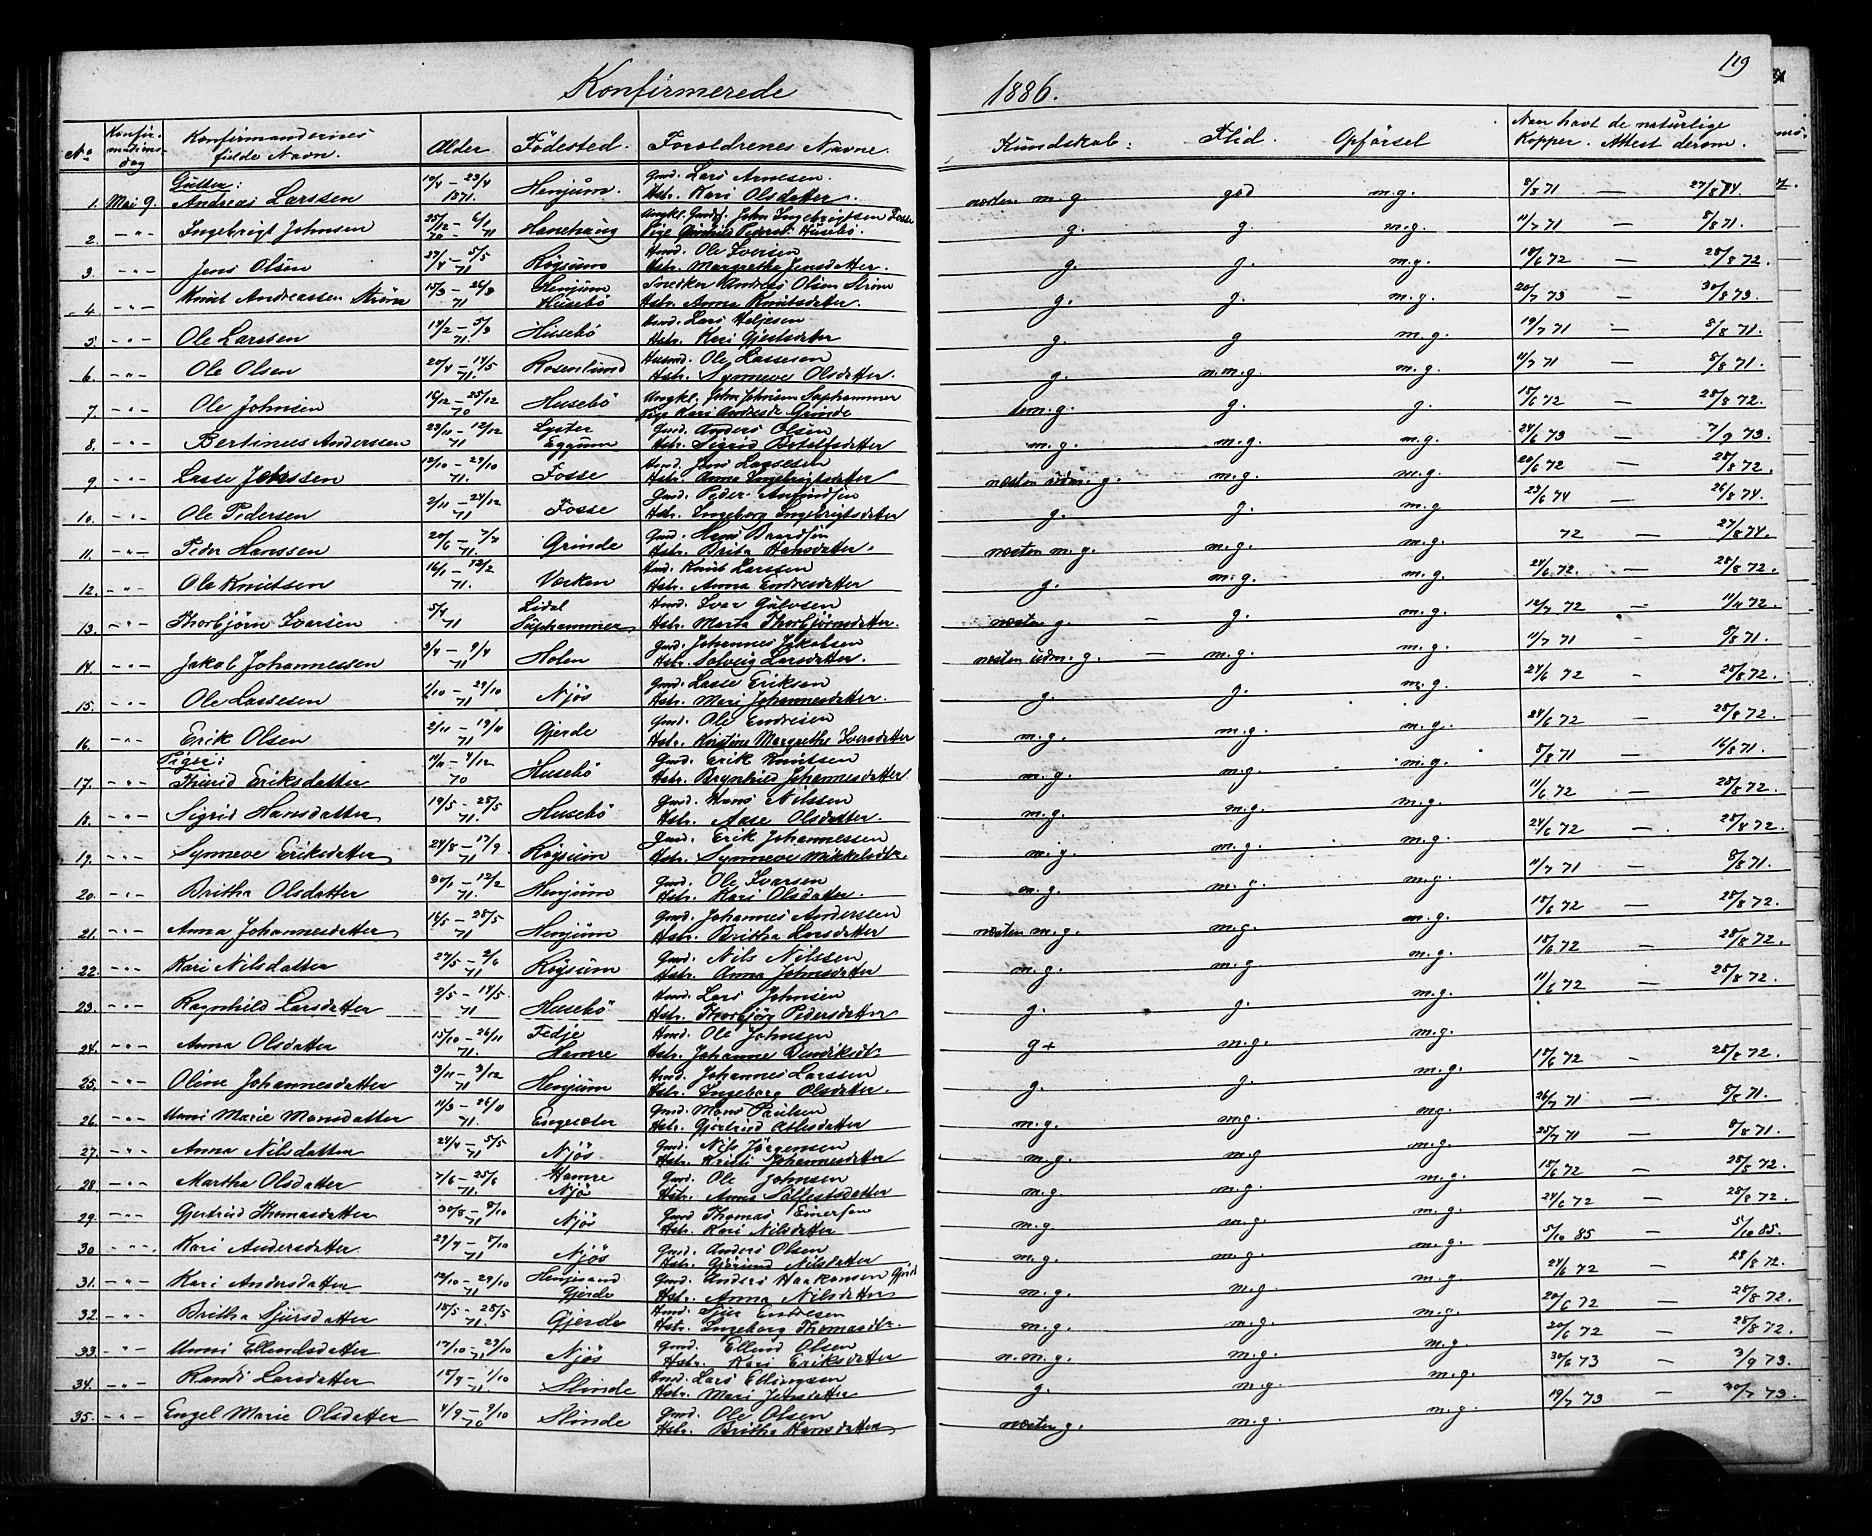 Konfirmerede 1886. 119
No Konfirmationsdag Konfirmandernes fulde Navn. Alder Födested. Foreldrenes Navne. Kundskab: Flid. Opförsel Naar havt de naturlige Kopper. Attest derom.
Gutter:
1. Mai 9. Andreas Larssen 10/4 – 23/4 1871. Henjum. Gmd. Lars Arnesen. Hstr. Kari Olsdatter. næsten m.g. god m.g. 8/8 71 — 27/8 84
2. – " – Ingebrigt Johnsen 25/12 70 – 6/1 71 Hanehaug Ungkl. John Ingebrigtsen Fosse Pige Pedersd. Husebö. g. g. m.g. 11/7 71 — 8/8 71.
3. – " – Jens Olsen 29/4 – 5/5 71 Röysum Hmd. Ole Iversen Hstr. Margretha Jensdatter. g. g. m.g. 18/6 72 — 28/8 72.
4. – " – Knut Andreassen Ström 15/3 – 26/3 71 Henjum Husebö Snedker Andreas Olsen Ström Hstr. Anna Knutsdatter. g. g. m.g. 20/7 73 — 30/8 73.
5. – " – Ole Larssen 14/2 – 5/3 71. Husebö Hmd. Lars Heljesen Hstr. Kari Gjestsdatter g. g m.g. 19/7 71 — 8/8 71.
6. – " – Ole Olsen 20/4 – 14/5 71. Rosenlund Husmd. Ole Lassesen Hstr. Synneve Olsdatter. g. n.m.g. m.g. 11/7 71 — 8/8 71.
7. – " – Ole Johnsen 16/12 – 25/12 70 Husebö Ungkl. John Johnsen Saphammer Pige Kari Andersdr Grinde temg. g. g. 18/6 72 — 28/8 72.
8. – " – Bertinus Anderssen 23/11 – 12/12 71 Lyster Eggum Gmd. Anders Olsen Hstr. Sigrid Botolfsdatter m.g. m.g. m.g. 24/6 73 — 7/9 73.
9. – " – Lasse Jenssen 12/10 – 29/10 71 Fosse Hmd. Jens Lassesen Hstr. Anna Ingebrigtsdatter næsten udm.g. m.g. m.g. 20/6 72 — 28/8 72.
10. – " – Ole Pedersen 2/11 – 24/12 71 Fosse Gmd. Peder Amundsen Hstr. Ingeborg Ingebrigtsdatter g. g. m.g 23/6 74 — 26/8 74.
11. – " – Peder Hanssen 20/6 – 7/7 71. Grinde Gmd. Hans Baardsen Hstr. Brita Hansdatter. næsten m.g. m.g. m.g. 72 — 27/8 74.
12. – " – Ole Knutsen 16/1 – 12/2 71. Verken Hmd. Knut Larssen Hstr. Anna Endresdatter g. m.g. m.g. 24/6 72. — 28/8 72.
13. – " – Thorbjörn Iversen 5/4 71 Lidal Saphammer Hmd. Ivar Gulvsen Hstr. Marta Thorbjörnsdatter. næsten g. — g. m.g. 12/7 72 — 11/11 72.
14. – " – Jakob Johannessen 3/4 – 9/4 71 Holen Gmd. Johannes Jakobsen Hstr. Solveig Larsdatter. næsten udm.g. — m.g. m.g. 11/7 71 — 8/8 71.
15. – " – Ole Lassesen 1/10 – 29/10 71 Njös Gmd. Lasse Eriksen Hstr. Mari Johannesdatter. g. g. m.g. 24/6 72 – 28/8 72.
16. – " – Erik Olsen 2/11 – 19/11 71 Gjerde Gmd. Ole Endresen Hstr. Kirstine Margrethe Iversdatter m.g. m.g. m.g. 24/6 72 — 28/8 72.
Piger:
17. – " – Thurid Eriksdatter 7/11 – 4/12 70 Husebö Gmd. Erik Knutsen Hstr. Brynhild Johannesdatter m.g. m.g. m.g. 8/8 71 — 16/8 71.
18. – " – Sigrid Hansdatter 19/5 – 28/5 71. Husebö Gmd. Hans Nilssen Hstr. Aase Olsdatter. m.g. m.g. m.g. 11/6 72 — 28/8 72.
19. – " – Synneve Eriksdatter 24/8 – 17/9 71. Röysum Gmd. Erik Johannessen Hstr. Synneve Mikkelsdtr. m.g. m.g. m.g. 24/6 72 — 28/8 72.
20. – " – Britha Olsdatter 30/1 – 12/2 71. Henjum Gmd. Ole Ivarsen Hstr. Kari Olsdatter. m.g. m.g. m.g. 11/7 71 — 8/8 71.
21. – " – Anna Johannesdatter 16/5 – 28/5 71 Henjum Gmd. Johannes Anderssen Hstr. Britha Larsdatter næsten m.g. m.g. m.g. 18/6 72 — 28/8 72.
22. – " – Kari Nilsdatter 27/5 – 2/6 71 Röysum Gmd. Nils Nilssen Hstr. Anna Johnsdatter m.g. m.g. m.g. 18/6 72 — 28/8 72.
23. – " – Ragnhild Larsdatter 2/5 – 14/5. 71 Husebö Hmd. Lars Johnsen Hstr. Thorbjör Pedersdatter g. g. m.g. 11/6 72 — 28/8 72.
24. – " – Anna Olsdatter 15/10 – 26/11 71. Fedje Hamre Hmd. Ole Johnsen Hstr. Johanne g+ m.g. m.g.
25. – " – Oline Johannesdatter 3/11 – 3/12 71 Henjum Hmd. Johannes Larssen Hstr. Ingeborg Olsdatter. g. g. m.g. 18/6 72 – 28/8 72.
26. – " – Unni Marie Monsdatter 11/3 – 26/11 71. Engesæter Gmd. Mons Paulsen Hstr. Gjertrud m.g. m.g. m.g. 26/7 71 — 8/8 71.
27. – " – Anna Nilsdatter 24/4 – 5/5 71 Njös Gmd. Nils Jörgensen Hstr. Kristi Johannesdatter m.g. m.g m.g. 25/7 71 — 8/8 71.
28 – " – Martha Olsdatter 7/6 – 25/6 71. Hamre Njös Gmd. Ole Johnsen Hstr. Anna Sjutfestsdatter m.g. m.g. m.g. 18/6 72 — 28/8 72.
29. – " – Gjertrud Thomasdatter 30/8 – 8/10 71 Njös Gmd Thomas Einersen Hstr. Kari Nilsdatter m.g. m.g. m.g. 24/6 72 — 28/8 72.
30 – " – Kari Andersdatter 29/9 – 8/10 71 Njös Gmd. Anders Olsen Hstr. Gjörund Nilsdatter m.g. m.g. m.g. 5/10 85 — 5/10 85.
31. – " – Kari Andersdatter 12/10 – 29/10 71 Henjesand Gjerde Gmd. Anders Haakonsen Gjerde Hstr. Anna Nilsdatter m.g. m.g. m.g 24/6 72 — 28/8 72.
32. – " – Britha Sjursdatter 18/5 – 28/5 71. Gjerde Hmd. Sjur Endresen Hstr. Ingeborg Thomasdtr. m.g. m.g. m.g. 20/6 72 — 28/8 72.
33. – " – Unni Ellendsdatter 17/10 – 29/10 71 Njös Gmd. Ellend Olsen Hstr. Kari Eriksdatter n.m.g. m.g. m.g. 20/6 72 — 28/8 72.
34. – " – Randi Larsdatter 15/9 – 1/10 71 Slinde Hmd. Lars Ellingsen Hstr. Mari Jensdatter g. m.g. m.g. 30/6 73 — 3/9 73.
35. – " – Engel Marie Olsdatter 4/9 – 9/10 70 Slinde Gmd. Ole Olsen Hstr. Britha Hansdatter næsten g. m.g. m.g. 19/7 73 — 30/7 73.